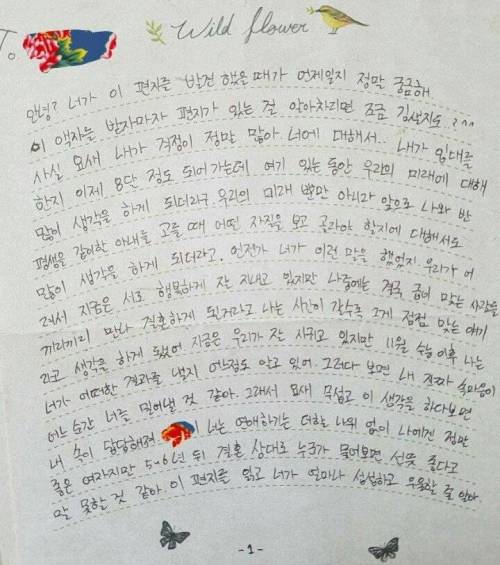 To.
Wild flower
안녕? 너가 이 편지를 발견 했을 때가 언제일지 정말 궁금해
이 액자를 받자마자 편지가 있는 걸 알아차리면 조금 김샐지도 ?ㅋㅋ
사실 요새 내가 걱정이 정말 많아 너에 대해서.. 내가 입대를
한지 이제 8단 정도 되어가는데 여기 있는 동안 우리의 미래에 대해
많이 생각을 하게 되더라구 우리의 미래 뿐만 아니라 앞으로 나와 반
평생을 같이할 아내를 고를 때 어떤 자질을 보고 골라야 할지에 대해서도
많이 생각을 하게 되더라고. 언젠가 너가 이런 말을 했었지 우리가 어
려서 지금은 서로 행복하게 잘 지내고 있지만 나중에는 결국 급이 맞는 사람들
끼리끼리 만나 결혼하게 될거라고 나는 시간이 갈수록 그게 점점 맞는 얘기
라고 생각을 하게 됐어 지금은 우리가 잘 사귀고 있지만 11월 수능 이후 나는
너가 어떠한 결과를 낼지 어느정도 알고 있어. 그러다 보면 내 진짜 속마음이
어느 순간 너를 밀어낼 것 같아. 그래서 요새 무섭고 이 생각을 하다보면
내 속이 답답해져 이 너는 연애하기는 더할 나위 없이 나에겐 정말
좋은 여자지만 5-6년 뒤 결혼 상대로 누군가 물어보면 선뜻 좋다고
말 못할 것 같아 이 편지를 읽고 너가 얼마나 섭섭하고 우울할 줄 알아
-1-